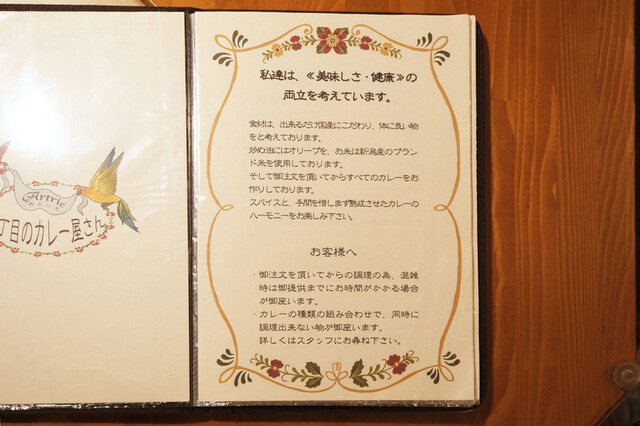 Artrie
丁目のカレー屋さん
私達は、≪美味しさ・健康≫の
両立を考えています。
食材は、出来るだけ国産にこだわり、体に良い物
をと考えております。
炒め油にはオリーブを、お米は新潟産のブラン
ド米を使用しております。
そして御注文を頂いてからすべてのカレーをお
作りしております。
スパイスと、手間を惜しまず熟成させたカレーの
ハーモニーをお楽しみ下さい。
お客様へ
・御注文を頂いてからの調理の為、混雑
時は御提供までにお時間がかかる場合
が御座います。
・カレーの種類の組み合わせで、同時に
調理出来ない物が御座います。
詳しくはスタッフにお尋ね下さい。